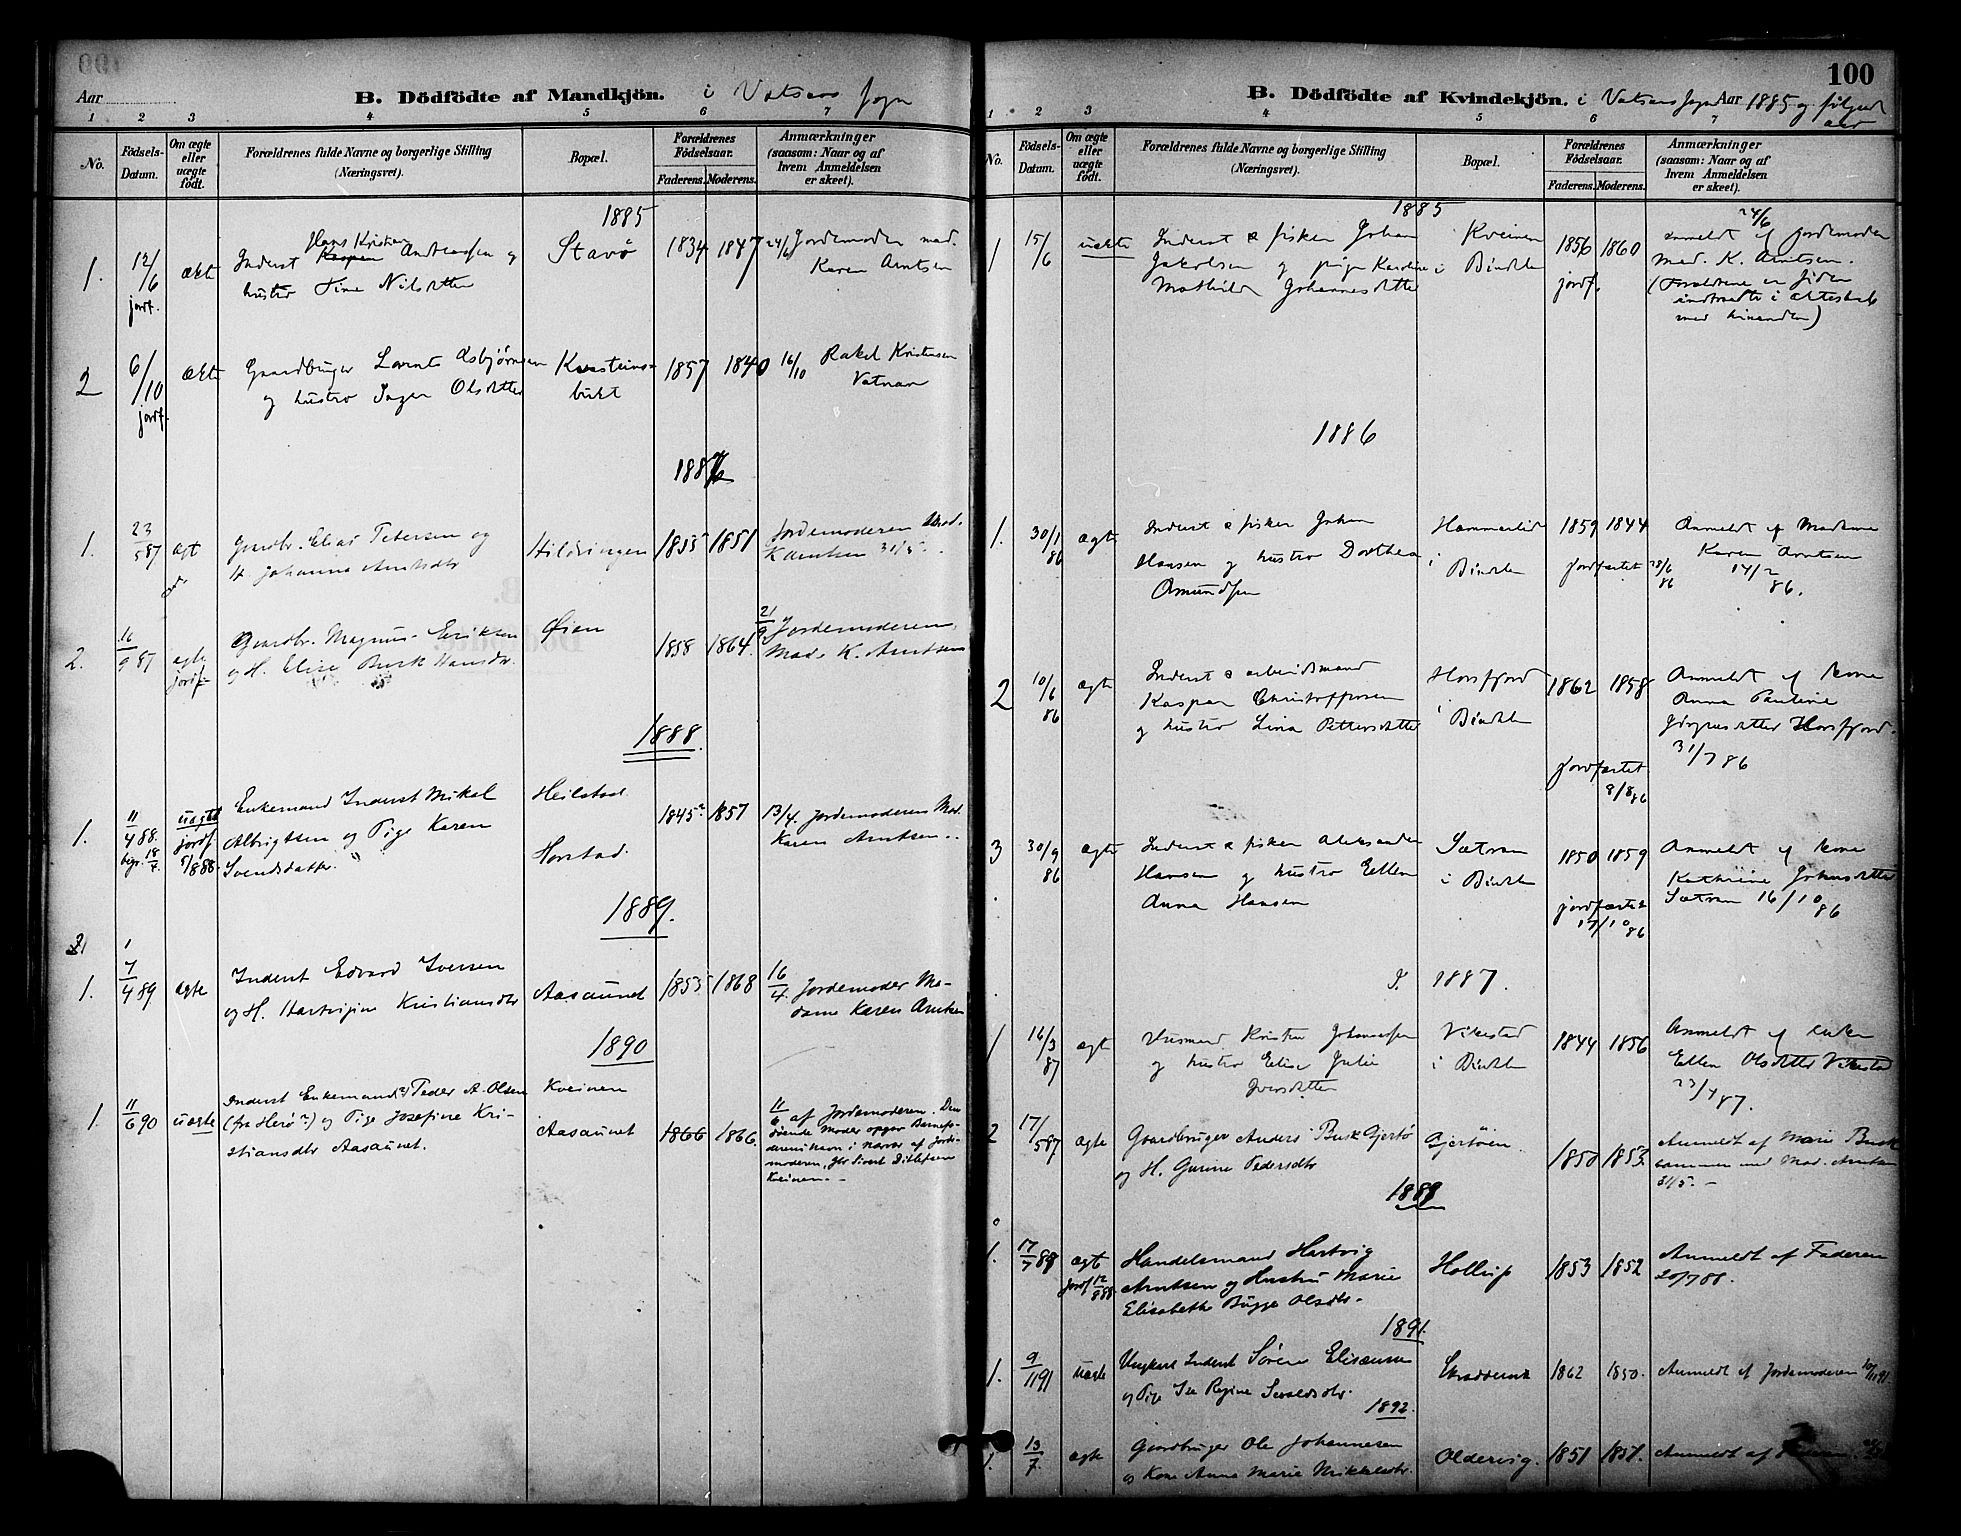 Aar
B. Dödfödte af Mandkjön. i Vatsaas Sogn
1 2 3 4 5 6 7
No.
Födsels-Datum.
Om ægte eller uægte födt.
Forældrenes fulde Navne og borgerlige Stilling (Næringsvei).
Bopæl.
Forældrenes Födselsaar.
Faderens. Moderens.
Anmærkninger (saasom: Naar og af hvem Anmeldelsen er skeet).
1885
1. 12/6 jordf. ækte
Inderst Hans Kristian Andreassen og
hustro Sine Nilsdatter
Stavø 1834 1847
24/6 Jordemoder mad.
Karen Arntsen
2 6/10 jordf. ækte
Gaardbruger Lorents Asbjørnsen
og hustro Inger Olsdatter
Kvasteins-
bukt
1857 1840
16/10 Rakel Kristensen
Vatnan
1887
1. 23/5 87 ægt
Gaardbr. Elias Petersen og
H. Johanna Arntsdtr
Hildringen 1855 1851
Jordemoderen Mad.
K Arntsen 31/5. -
2. 16/9 87 ægte jordf.
Gaardbr. Magnus Eriksen
og H. Elise Busk Hansdr.
Øien 1858 1864.
21/9 Jordemoderen,
Mad. K. Arntsen
1888.
1. 11/4 88. begr. 18/4. uægte jordf 5/8 88.
Enkemand Inderst Mikal
Albrigtsen og Pige Karen
Svendsdatter
Heilstad
Horstad.
1845? 1857
13/4. Jordemoderen Mad.
Karen Arntsen..
1889.
1. 7/4 89 ægte
Inderst Edvard Iversen
og H. Hartvigine Kristiansdtr
Aasaunet 1853 1868
16/4. Jordemoder Ma-
dame Karen Arntsen
1890
1. 11/6 90 uægte
Inderst Enkemand(?) Peder A. Olsen
(fra Herø?) og Pige Josefine Kri-
stiansdtr Aasaunet.
Kveinen
Aasaunet
1866 1866
11/6 af Jordemoderen. Den
döende Moder opgav Barnefa-
derens Navn i Nærvær af Jorde-
moderen, Gbr Sivert Ditlefsen
Kveinen. -
100
B. Dödfödte af Kvindekjön. i Vatsaas Sogn Aar 1885 og følgende
aar
1 2 3 4 5 6 7
No.
Födsels-Datum.
Om ægte eller uægte födt.
Forældrenes fulde Navne og borgerlige Stilling (Næringsvei).
Bopæl.
Forældrenes Födselsaar.
Faderens. Moderens.
Anmærkninger (saasom: Naar og af hvem Anmeldelsen er skeet).
1885
1 15/6 uækte
Inderst & fisker Johan
Jakobsen og pige Karoline
Mathilde Johannesdatter
Kveinen
i Bindalen
1856 1860
jordf.
24/6
anmeldt af jordemoder
mad. K. Arntsen.
(Forældrene er siden
indtraadte i ækteskab
med hinanden)
1886
1. 30/1 86 ægte
Inderst & fisker Johan
Hansen og hustro Dorthea
Amundsen
Hammerlid
i Bindalen
1859 1844
jordfæstet 28/6 86
Anmeldt af Madame
Karen Arntsen
14/2 86.
2 10/6 86 ægte
Inderst & arbeidsmand
Kaspar Christoffersen
og hustro Lina Pettersdatter
Horsfjord
i Bindalen
1862 1858
jordfæstet
8/8 86
Anmeldt af kone
Anna Pauline
Horsfjord.
31/7 86
3 30/9 86 ægte
Inderst & fisker Aleksander
Hansen og hustro Ellen
Anna Hansen
Sætran
i Bindalen
1850 1859
jordfæstet
17/10 86
Anmeldt af kone
Kathrine Johansdatter
Sætran 16/10 86
1887.
1 16/3 87 ægt
Husmand Kristen Johansen
og hustro Elise Julie
Iversdatter
Vikestad
i Bindalen
1844 1856
Anmeldt af enken
Ellen Olsdatter Vikestad
23/4 87.
2 17/5 87 ægte
Gaardbruger Anders Busk Gjertö
og H. Gurine Pedersdtr
Gjertöien. 1850 1853
Anmeldt af Marie Busk
sammen med Mad. Arntsen
31/5. -
1888
1. 17/7 88 ægte jordf 12/8 88
Handelsmand Hartvig
Arntsen og Hustru Marie
Elisabeth Bugge Olsdtr.
Holstrip 1853 1852
Anmeldt af Faderen
20/7 88.
1891.
1. 9/11 91 uægte
Ungkarl Inderst Sören Eliseussen
og Pige Ida Regine Sevaldsdtr.
1862 1850.
Anmeldt af Jordemoderen 10/11 91
1892.
1. 13/7. ægte
Gaardbruger Ole Johannesen
og Kone Anna Marie Mikkelsdtr.
Oldervig. 1851 1851.
Anmeldt af